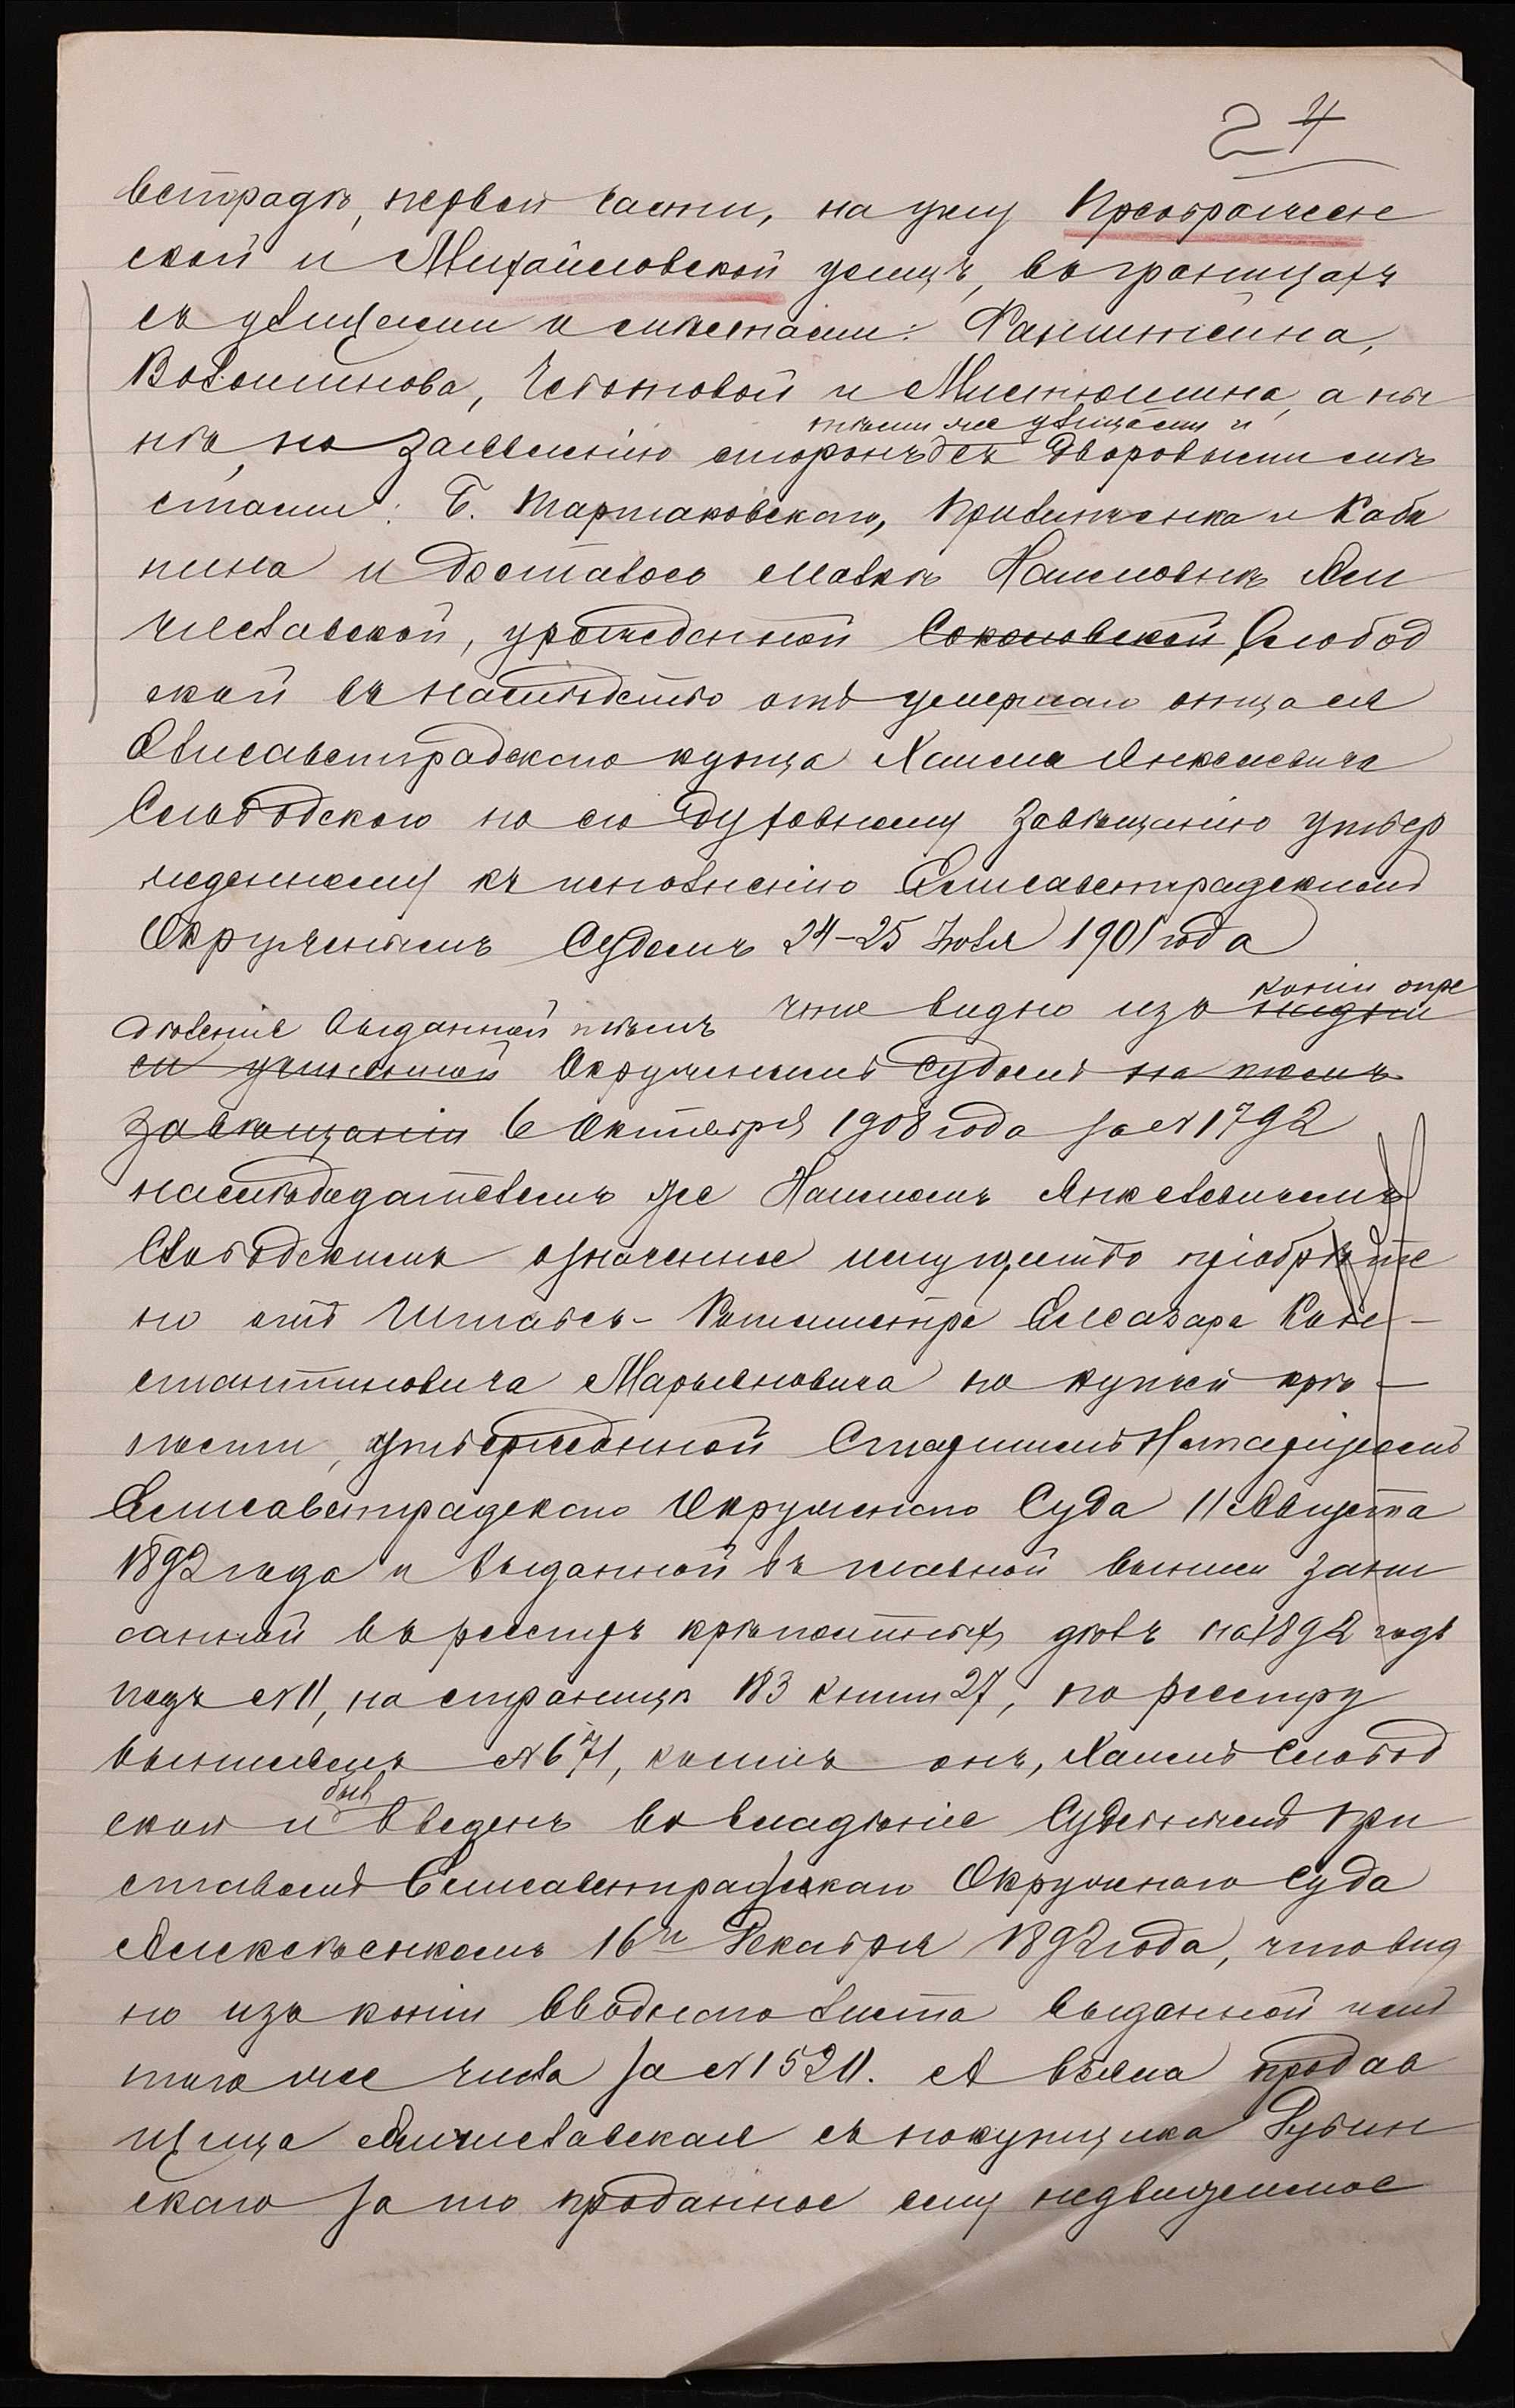 24
ветградѣ, первой части, на углу Преображен
ской и Михайловской улицъ, въ границахъ
съ улицами и смѣстами: Файнштейна,
Волошинова, Чеботовой и Мистюшина, а ны
тѣми же улицами и
нѣ, по заявленію сторонъ съ дворовыми мѣ
стами: Б. Тартаковскаго, Кривитченка и Каба
кина и досталось Малкѣ Хаимовнѣ Ями
числавской, урожденной Соколовской Слобод
ской въ наслѣдство отъ умершаго отца ея
Елисаветградскаго купца Хаима Янкелевича
Слободского по его духовному завѣщанію утвер
жденному къ исполненію Елисаветградскимъ
Окружнымъ Судомъ 24-25 Іюля 1901 года
что видно изъ копіи опре
дѣленія выданной тѣмъ
Окружнымъ Судомъ на томъ
завѣщаніи 6 Октября 1908 года за № 1792
наслѣдодателемъ же Хаимомъ Янкелевичемъ
Слободскимъ означенное имущество пріобрѣте
но отъ Штабсъ-Ротмистра Елеазара Кон-
стантиновича Марьяновича по купчей крѣ-
пости, утвержденной Старшимъ Нотаріусомъ
Елисаветградскаго Окружнаго Суда 11 Августа
1892 года и выданной въ главной выписи запи
санной въ реестръ крѣпостныхъ дѣлъ на 1892 годъ
подъ № 11, на страницѣ 183 книги 27, по реестру
выписямъ № 671, коимъ онъ, Хаимъ Слобод
ской и былъ введенъ во владѣніе Судебнымъ При
ставомъ Елисаветградскаго Окружнаго Суда
Алексѣенкомъ 16го Декабря 1892 года, что вид
но изъ копіи вводнаго листа выданной имъ
того же числа за № 1521. А взяла продав
щица Ямчиславская съ покупщика Рубин
скаго за то проданное ему недвижимое